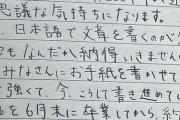 思議な気持ちになります。
日本語で文章を書くのが
もなんだか納得いきません
みなさんにお手紙を書かせて
強くて、今、こうして書き進めてい
を6月末に卒業してから、